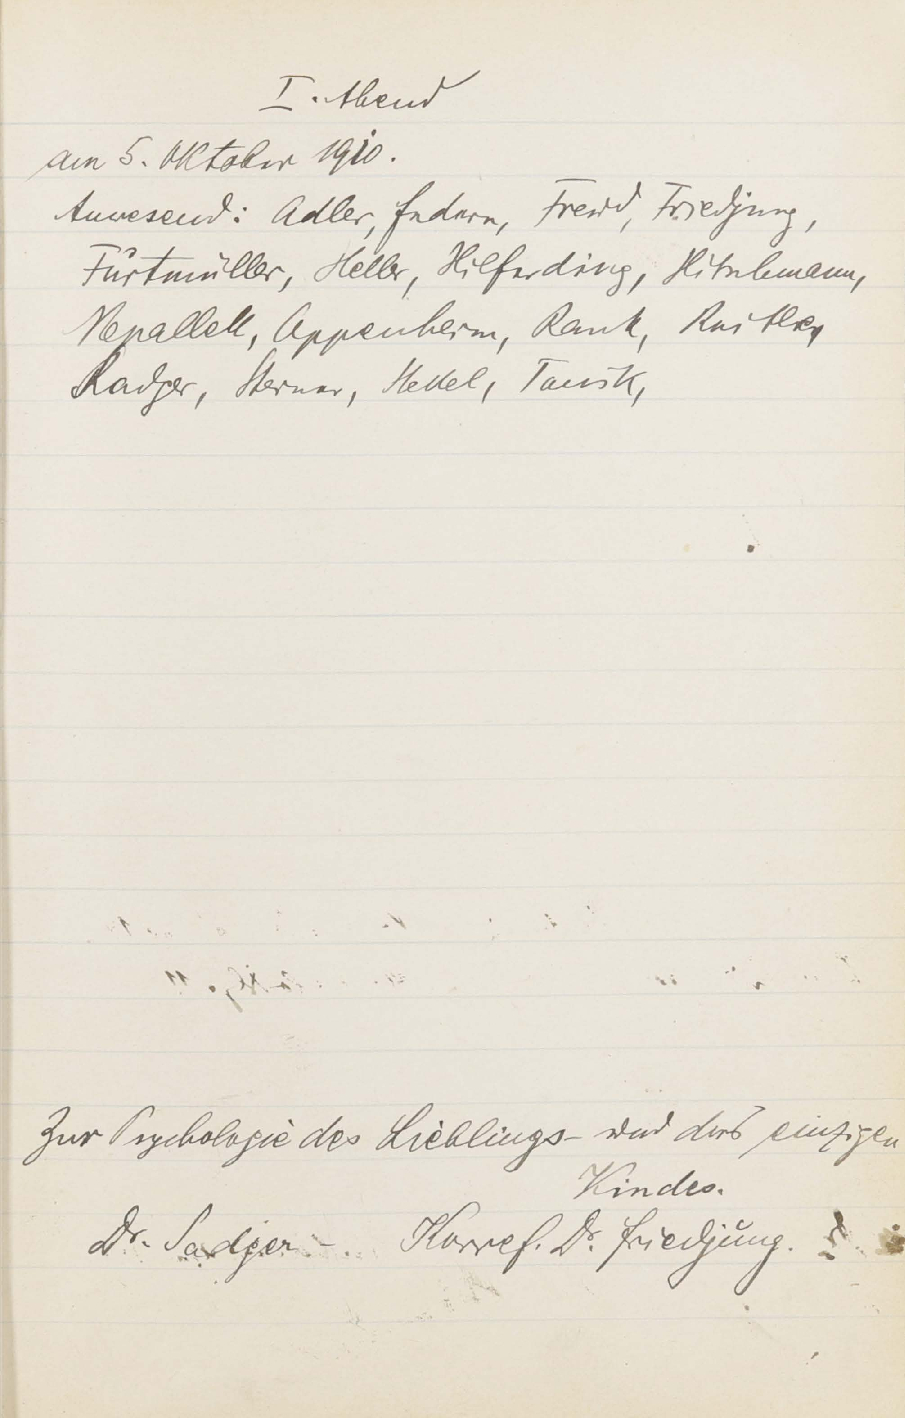 I. Abend
am 5. Oktober 1910.
Anwesend: Adler, Federn, Freud, Friedjung,
Fürtmüller, Heller, Hilferding, Hitschmann,
Nepallek, Oppenheim, Rank, Reitler,
Sadger, Steiner, Stekel, Tausk,
Zur Psychologie des Lieblings- und des einzigen
Kindes.
Dr. Sadger - Korref. Dr. Friedjung.